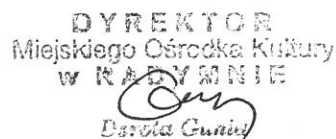 DYREKTOR
Miejskiego Ośrodka Kultury
W RADYMNIE
Dorota